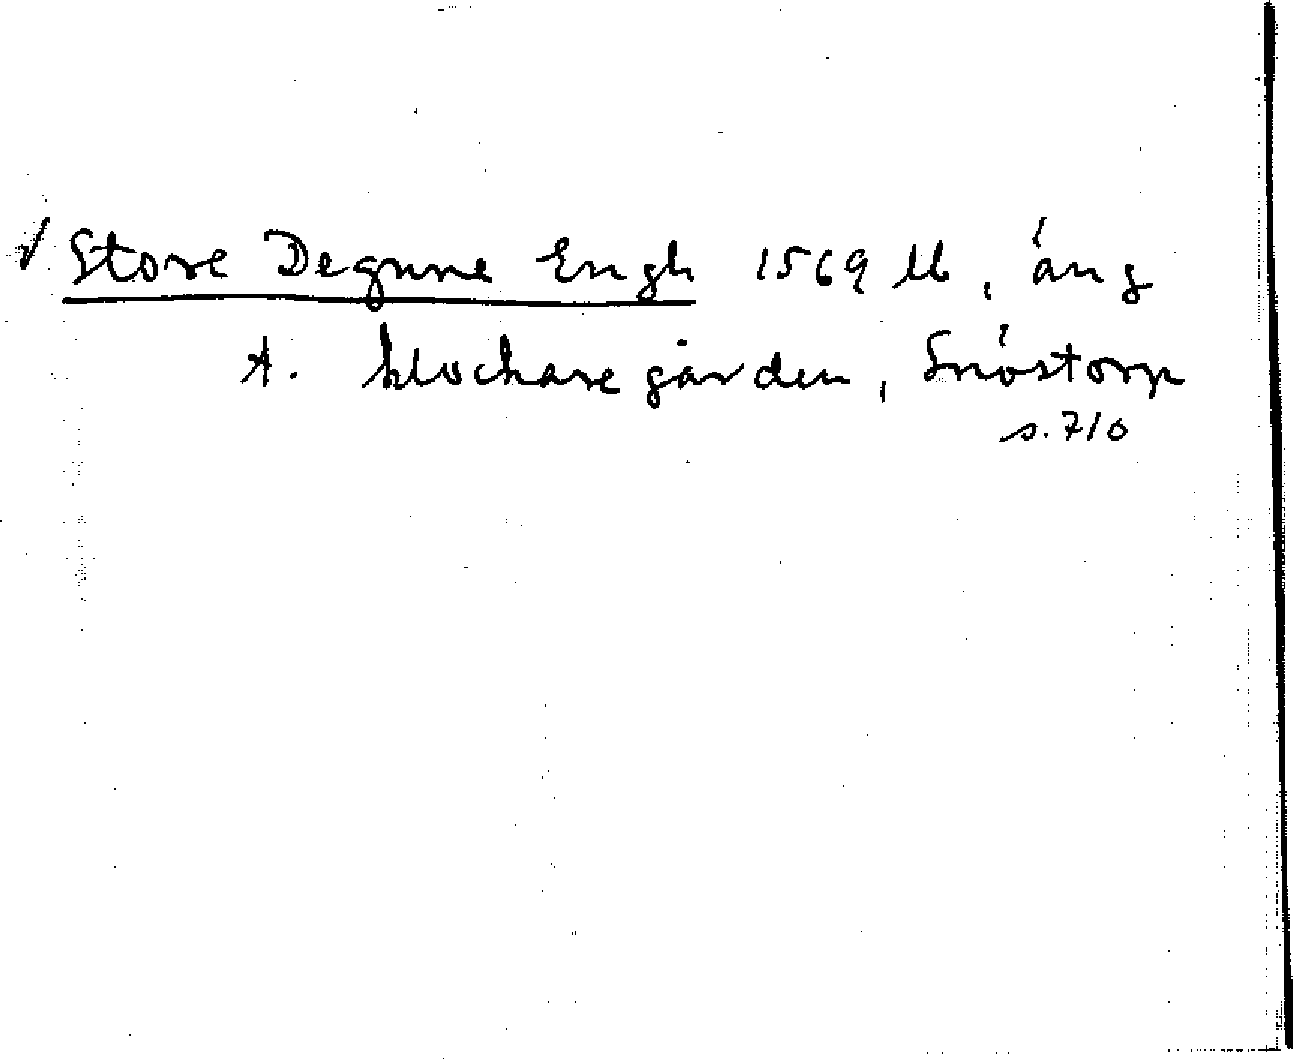 √ Store Degnne Engh 1569 lb, äng
t. klockaregården, Snöstorp
s. 710